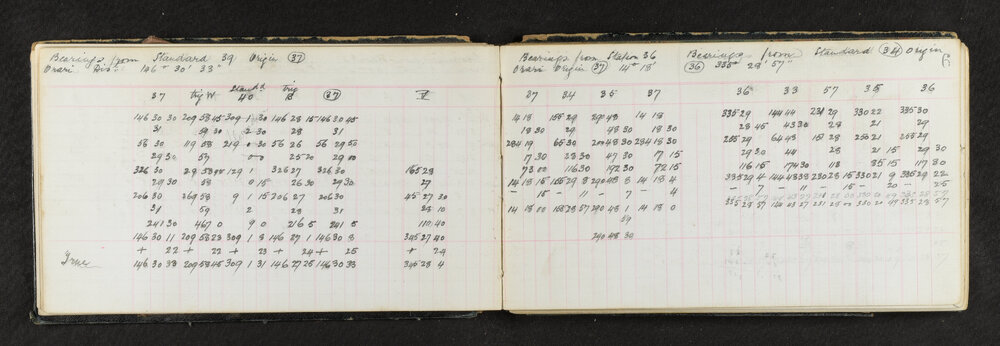 Bearings from Standard 39 Origin 37
Orari Dist 146° 30' 33"
37 trig W Stand'd 40 trig B 37 V
146 30 30 209 58 45 309 1 30 146 28 15 146 30 45
31 59 30 2 30 28 31
56 30 119 58 219 0 30 56 26 56 29 50
29 30 59 0-0 25-20 29 00
326 30 29 58 00 129 1 326 27 326 30 165 28
29 30 58 0 15 26 30 29 30 27
206 30 269 58 9 1 15 206 27 206 30 45 27 30
31 59 2 28 31 28 10
241 30 467 0 9 0 216 5 241 5 110 40
146 30 11 209 58 23 309 1 8 146 27 1 146 30 8 345 27 40
+ 22 + 22 + 23 + 24 + 25 + 24
True 146 30 33 209 58 45 309 1 31 146 27 25 146 30 33 345 28 4
Bearings from Station 36
Orari Origin 37 14° 18'
37 34 35 37
14 18 158 29 290 48 14 18
18 30 29 48 30 18 30
284 19 65 30 200 48 30 284 18 30
17 30 28 30 47 30 17 15
73 00 116 30 192 30 72 15
14 18 15 158 29 8 290 48 8 14 18 4
- 15 - 11 - 7 - 4
14 18 00 158 28 57 290 48 1 14 18 0
59
290 48 30
Bearings from Standard 34 Origin
36 338° 28' 57"
36 33 57 35 36
335 29 144 44 231 29 330 22 335 30
28 45 43 30 28 21 29
255 29 64 43 151 28 250 21 255 29
29 30 44 28 21 15 29 30
116 15 174 30 118 85 15 117 30
335 29 4 144 43 38 231 28 15 330 21 9 335 29 22
- 7 - 11 - 15 - 20 - 25
335 28 57 144 43 27 231 28 00 330 20 49 335 28 57